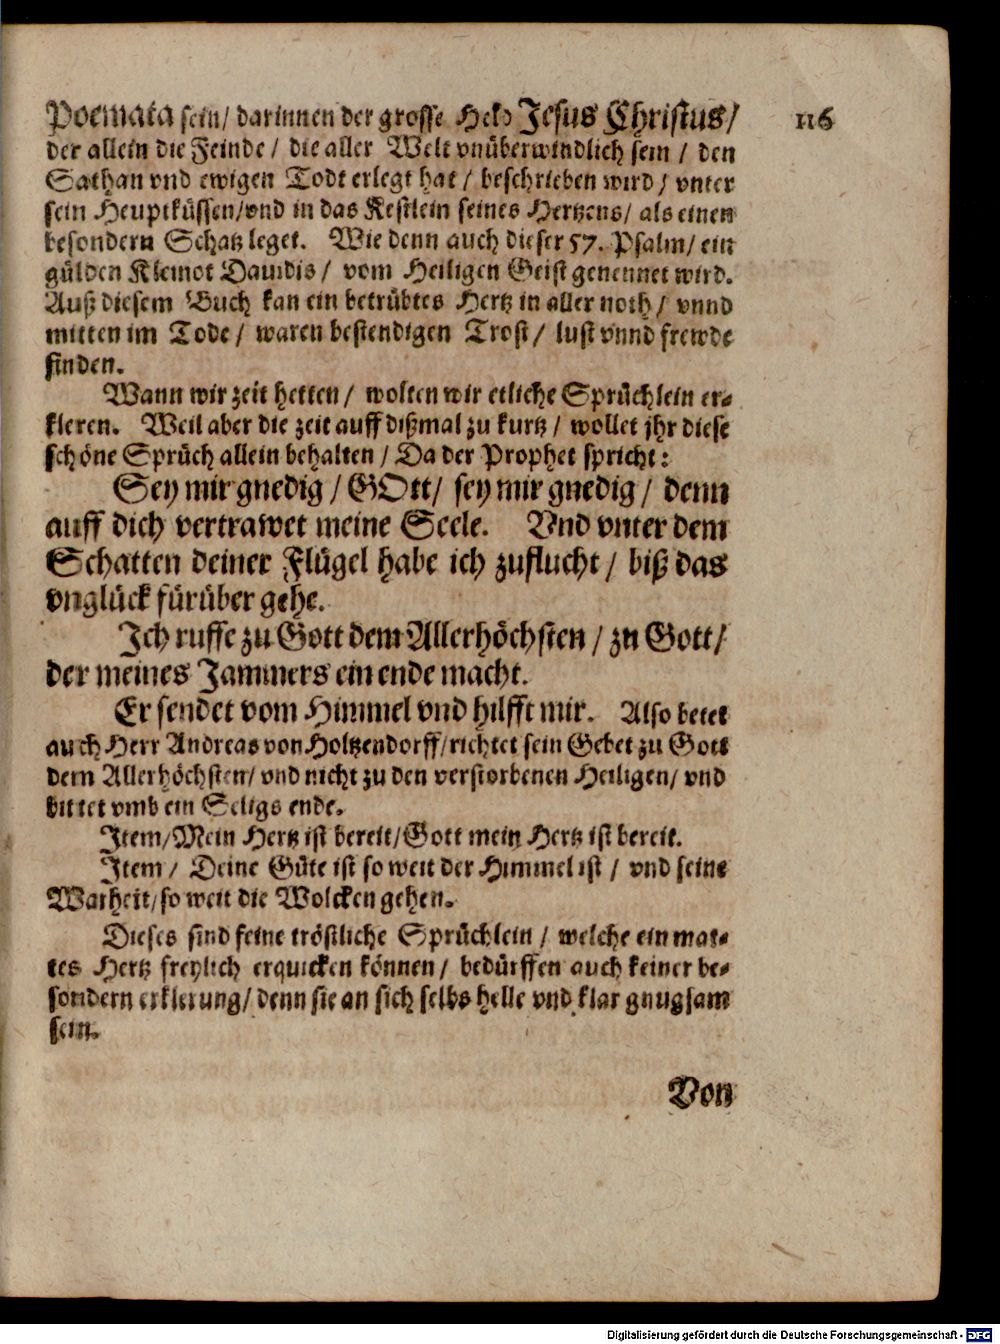 Poemata sein/ darinnen der grosse Held Jesus Christus/
116
der allein die Feinde/ die aller Welt vnüberwindlich sein / den
Sathan vnd ewigen Todt erlegt hat / beschrieben wird/ vnter
sein Heuptküssen/vnd in das Kestlein seines Hertzens/ als einen
besondern Schatz leget. Wie denn auch dieser 57. Psalm/ ein
gülden Kleinot Dauidis/ vom Heiligen Geist genennet wird.
Auß diesem Buch kan ein betrübtes Hertz in aller noth/ vnnd
mitten im Tode/ waren bestendigen Trost/ lust vnnd frewde
finden.
Wann wir zeit hetten/ wolten wir etliche Sprüchlein er-
kleren. Weil aber die zeit auff dißmal zu kurtz/ wollet jhr diese
schöne Sprüch allein behalten/ Da der Prophet spricht:
Sey mir gnedig / GOtt/ sey mir gnedig/ denn
auff dich vertrawet meine Seele. Vnd vnter dem
Schatten deiner Flügel habe ich zuflucht/ biß das
vnglück fürüber gehe.
Ich ruffe zu Gott dem Allerhöchsten/ zu Gott/
der meines Jammers ein ende macht.
Er sendet vom Himmel vnd hilfft mir. Also betet
auch Herr Andreas von Holtzendorff/richtet sein Gebet zu Gott
dem Allerhöchsten/ vnd nicht zu den verstorbenen Heiligen/ vnd
bittet vmb ein Seligs ende.
Item/Mein Hertz ist bereit/Gott mein Hertz ist bereit.
Item/ Deine Güte ist so weit der Himmel ist/ vnd seine
Warheit/so weit die Wolcken gehen.
Dieses sind feine tröstliche Sprüchlein/ welche ein mat-
tes Hertz freylich erquicken können/ bedürffen auch keiner be-
sondern erklerung/ denn sie an sich selbs helle vnd klar gnugsam
sein.
Von
Digitalisierung gefördert durch die Deutsche Forschungsgemeinschaft - DFG